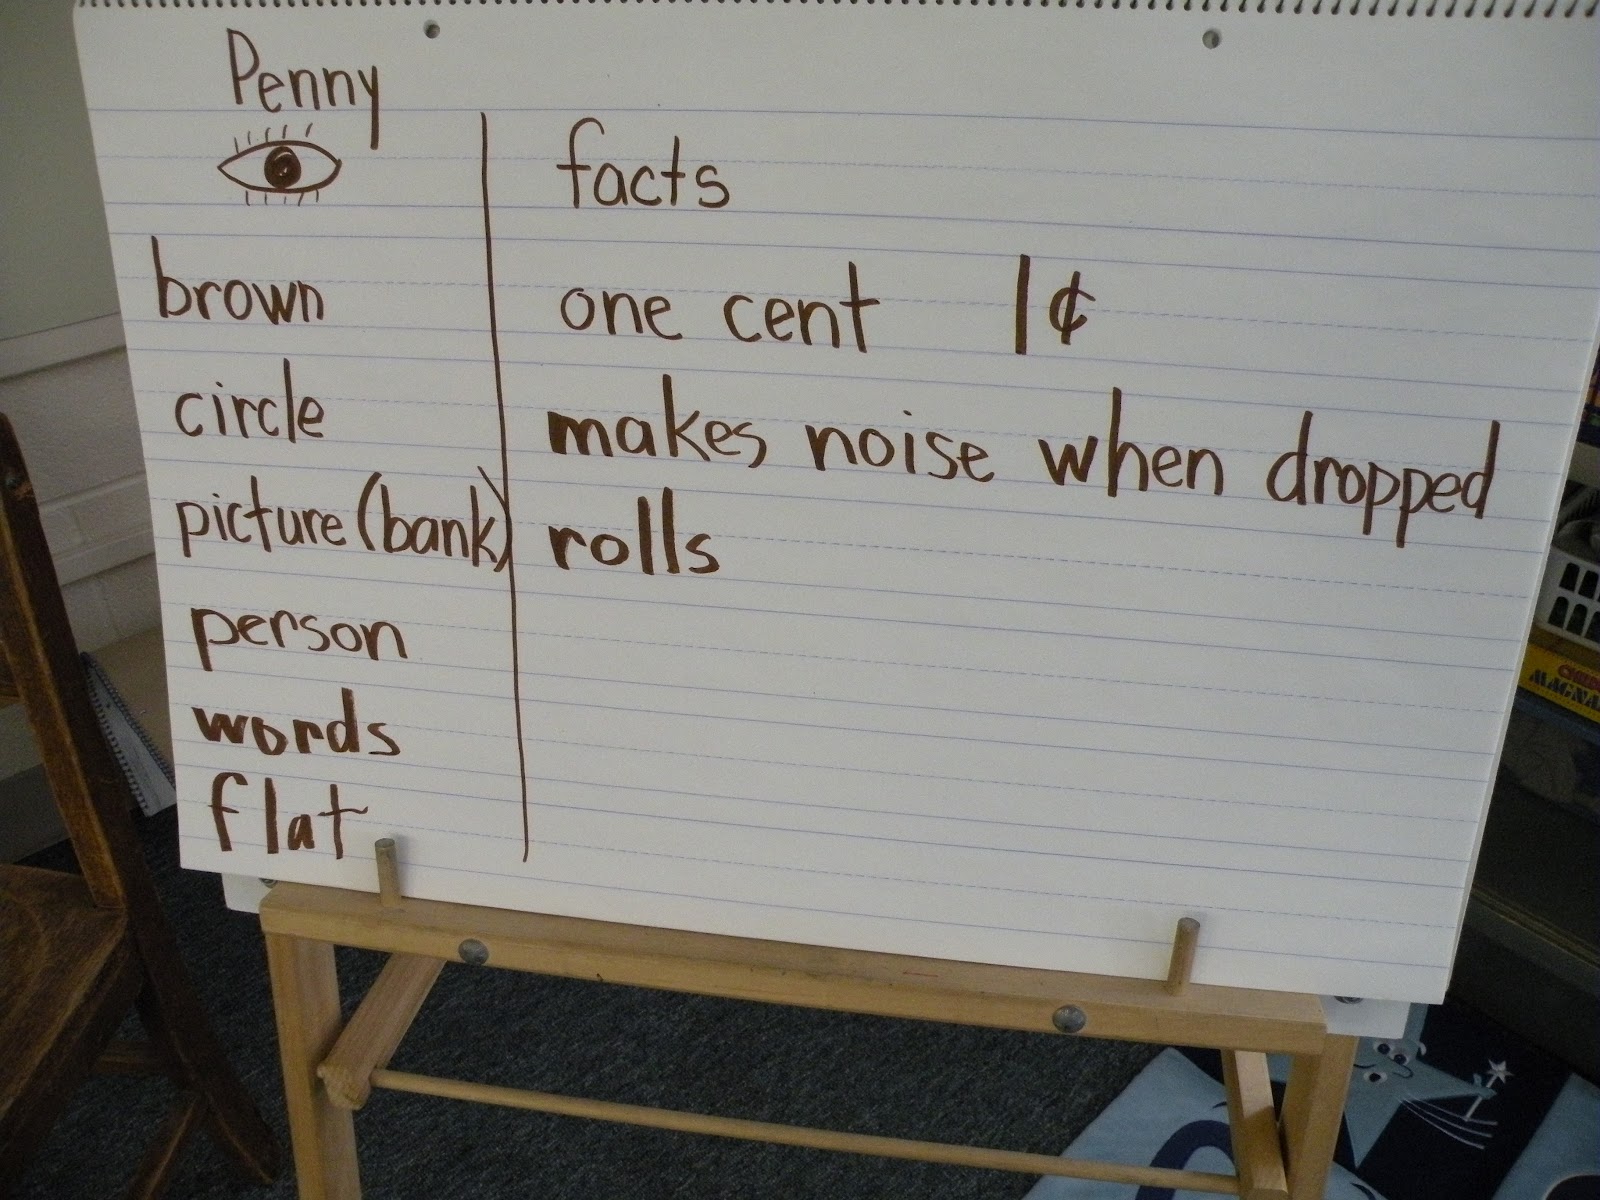 Penny
facts
brown
one cent 1¢
circle
makes noise when dropped
picture (bank)
rolls
person
words
flat